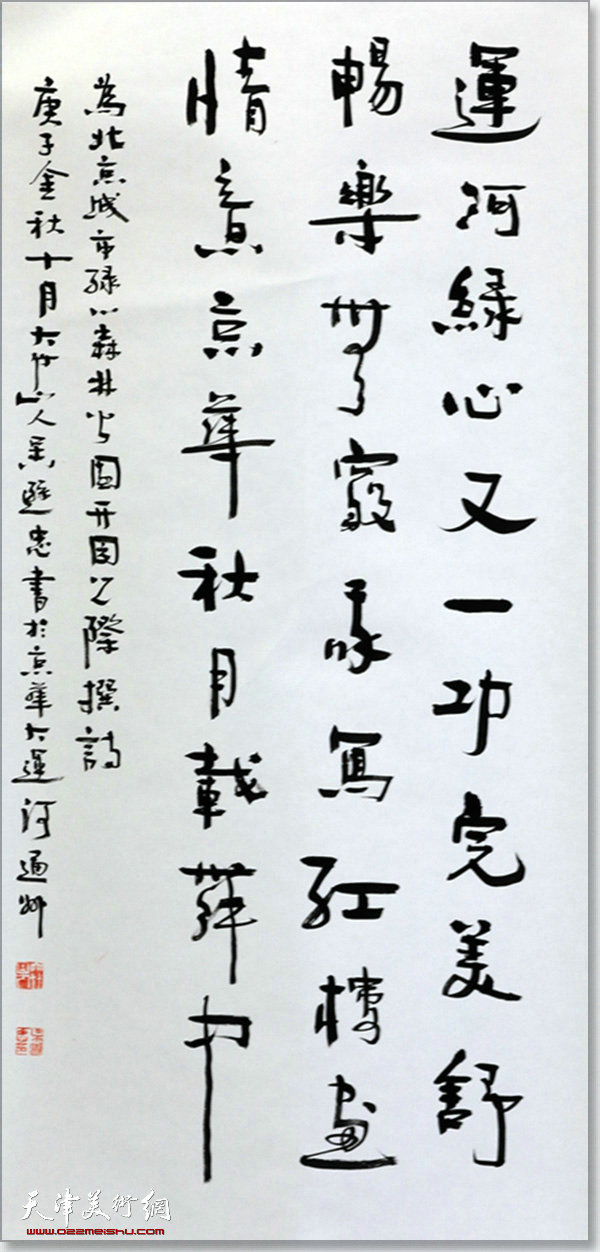 運河緑心又一功完美舒
暢樂無窮寫紅樓畫
情意京華秋月載舞中
為北京城市緑心森林公園开園之際撰詩
庚子金秋十月大竹山人忠書於京華大運河通州
天津美術網
www.022meishu.com